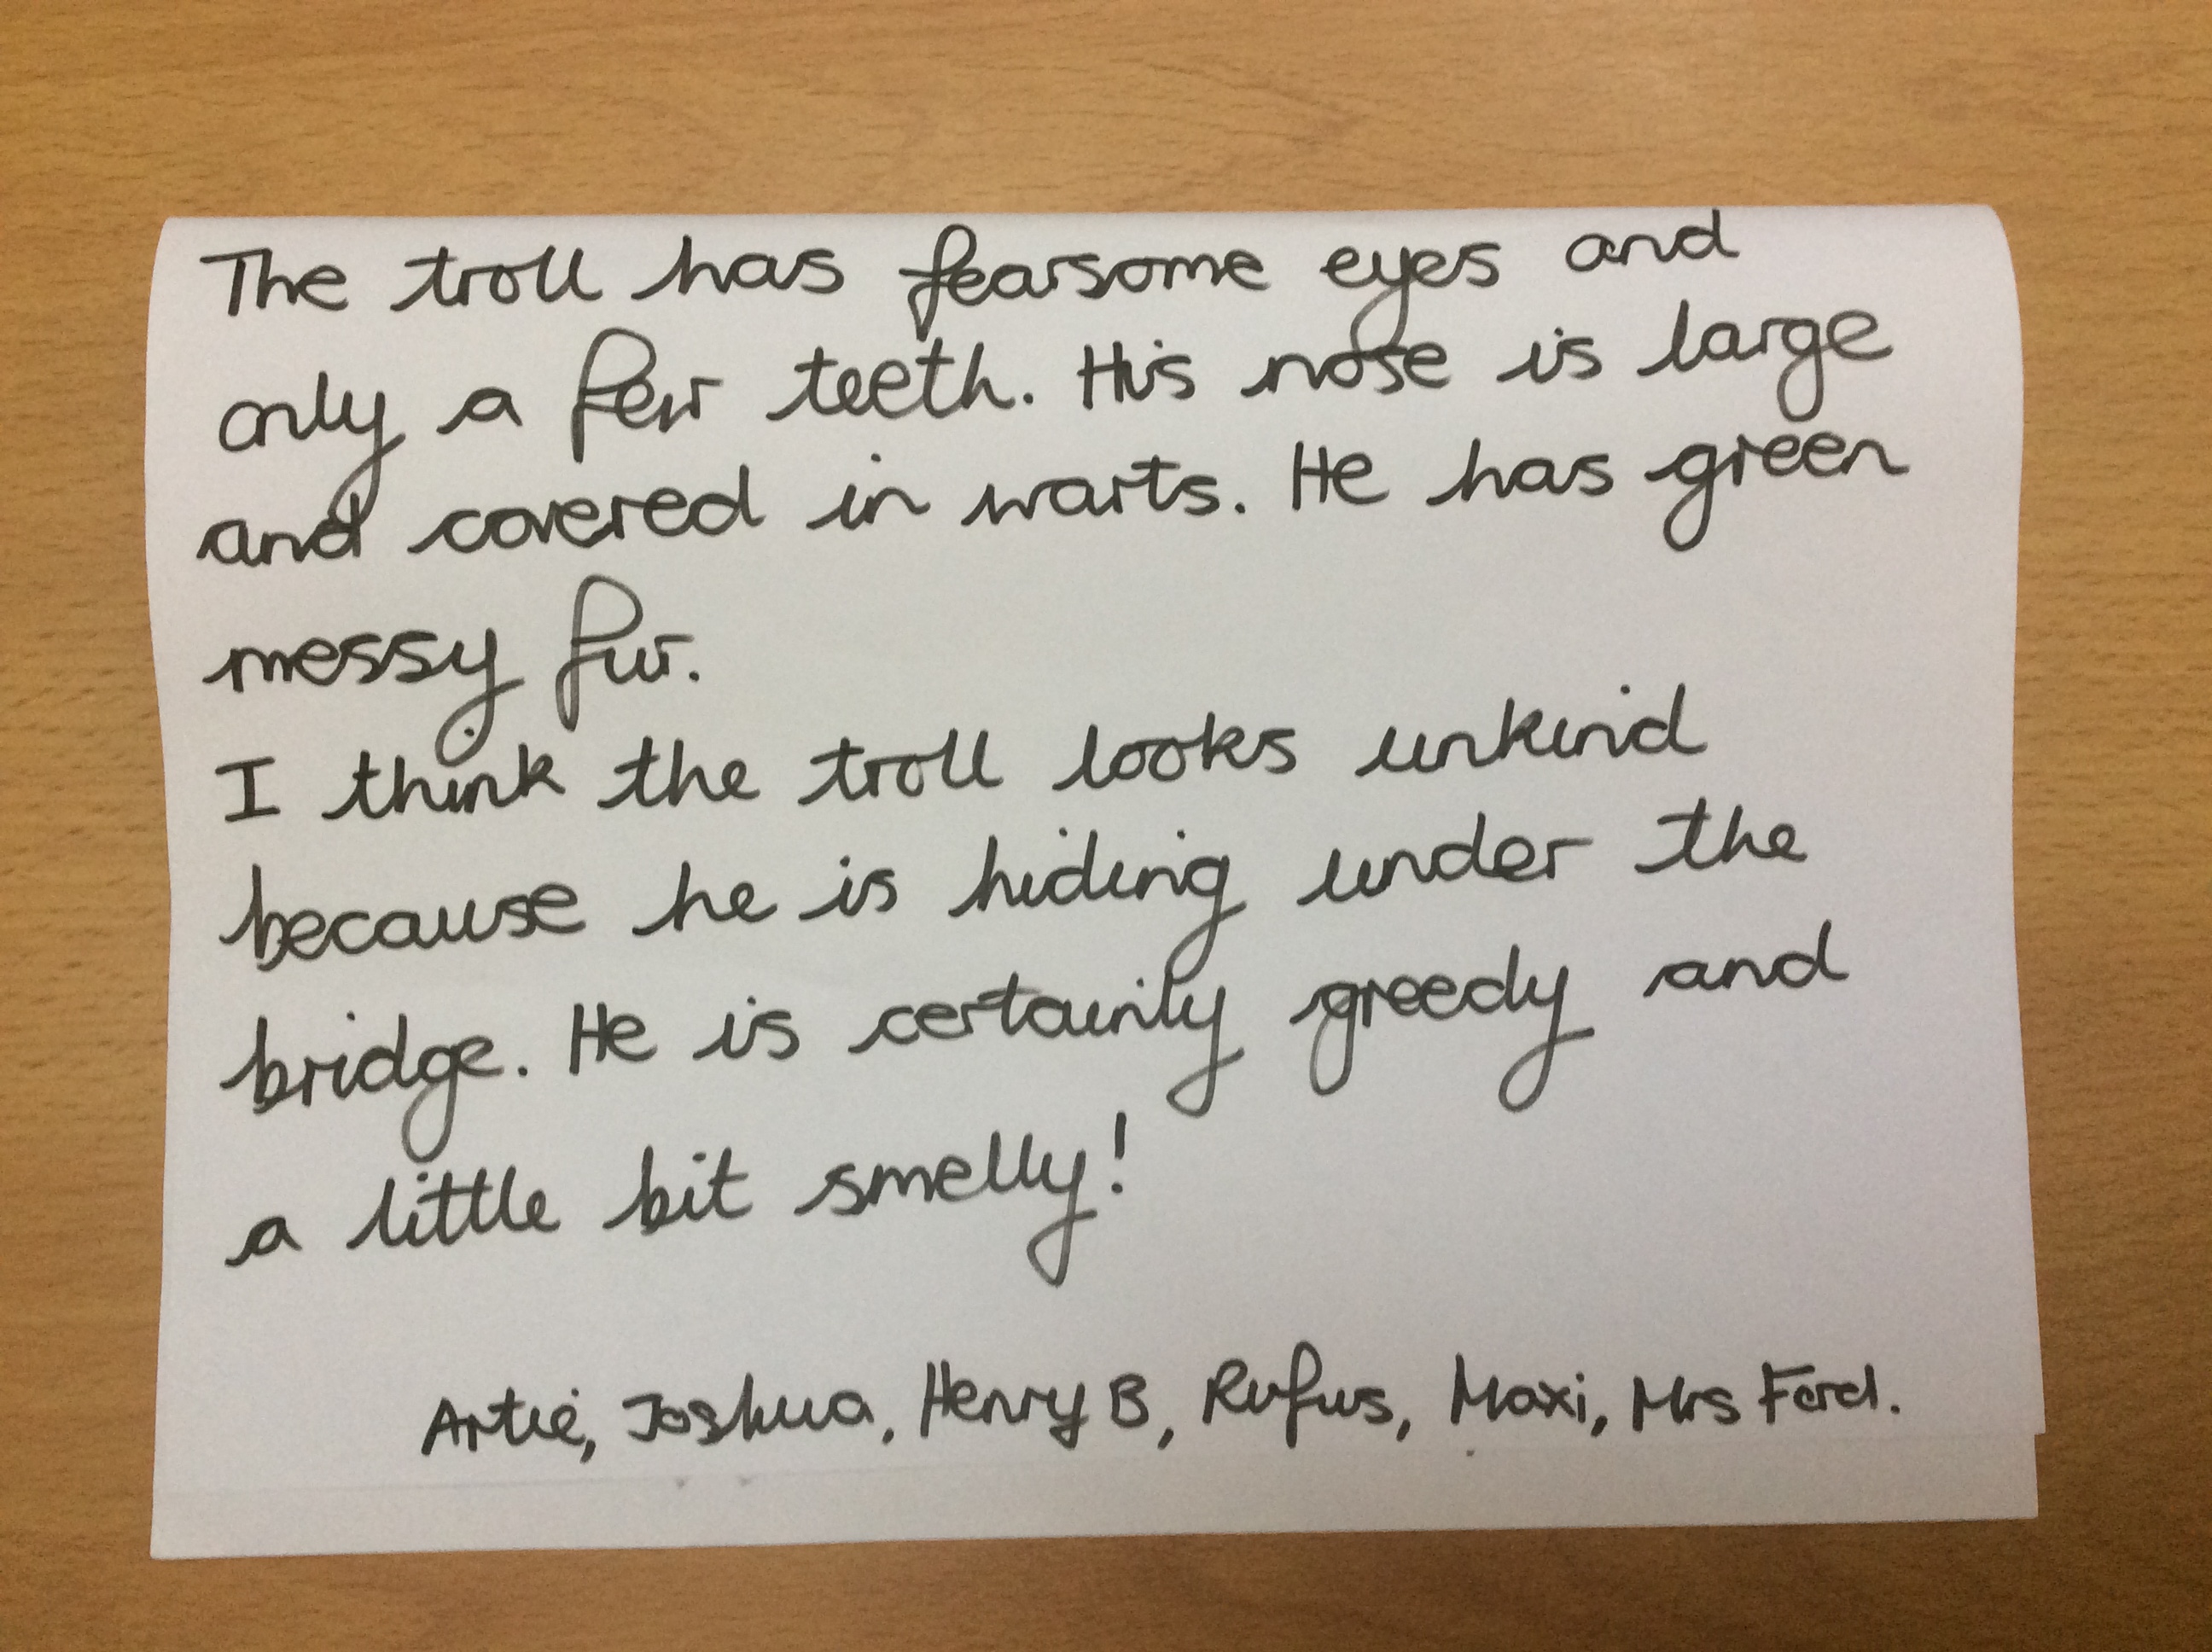 The troll has fearsome eyes and
only a few teeth. His nose is large
and covered in warts. He has green
messy fur.
I think the troll looks unkind
because he is hiding under the
bridge. He is certainly greedy and
a little bit smelly!
Artie, Joshua, Henry B, Rufus, Maxi, Mrs Ford.